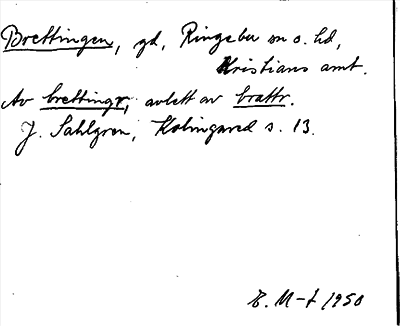 Brettingen, gd, Ringebu sn o. hd,
Kristians amt.
Av brettingr, avlett av brattr.
J. Sahlgren, Kolingared s. 13.
E. M-t 1950